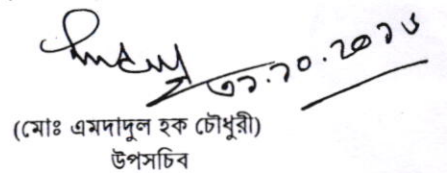 ৩১.১০.২০১৬
(মোঃ এমদাদুল হক চৌধুরী)
উপসচিব